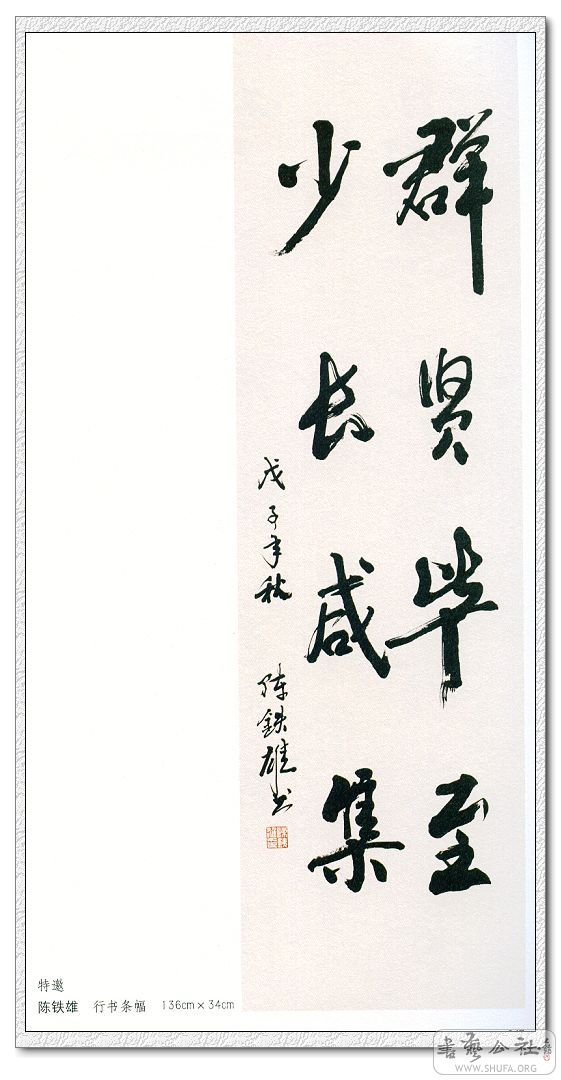 群贤毕至
少长咸集
戊子年秋 陈铁雄书
特邀
陈铁雄 行书条幅 136cm×34cm
書藝公社
WWW.SHUFA.ORG